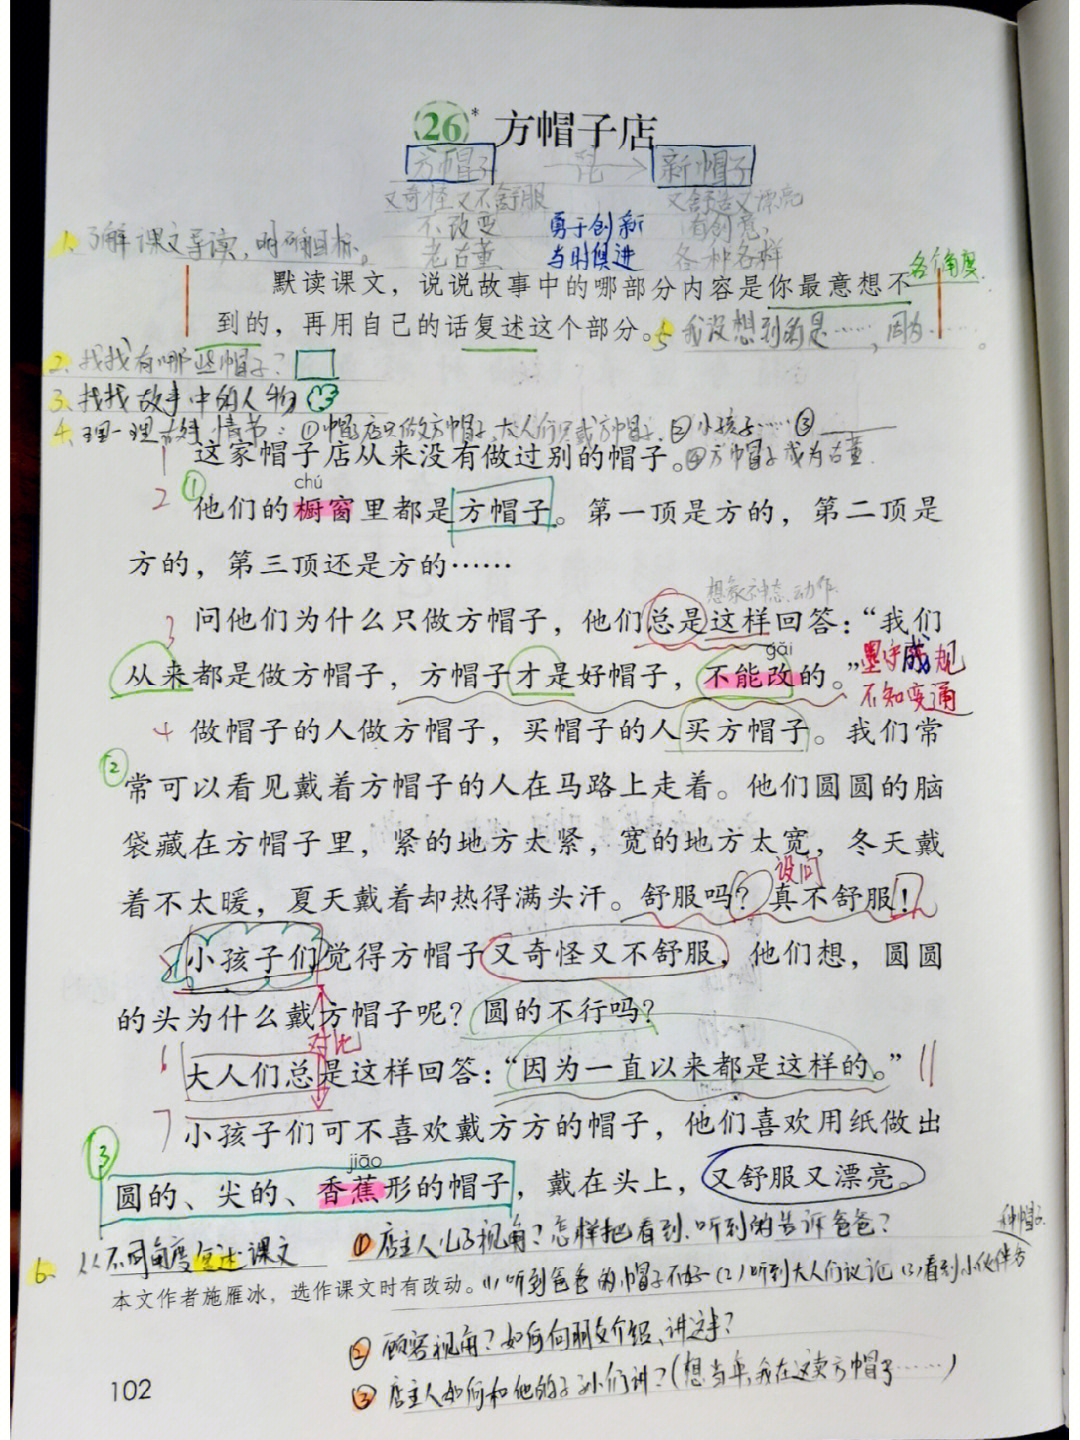 26* 方帽子店
方帽子 → 新帽子
又奇怪又不舒服 又舒适又漂亮
不改变 勇于创新 有创意,
老古董 与时俱进 各种各样
1. 了解课文导读,明确目标。
各个角度.
默读课文，说说故事中的哪部分内容是你最意想不
到的，再用自己的话复述这个部分。 5 我没想到的是……，因为……。
2. 找找有哪些帽子?
3. 找找故事中的人物
4. 理一理故事情节: ①帽子店只做方帽子,大人们只戴方帽子. ②小孩子…… ③
这家帽子店从来没有做过别的帽子。 ④方帽子成为古董.
1
chú
2 ① 他们的橱窗里都是方帽子。第一顶是方的，第二顶是
方的，第三顶还是方的……
想象神态、动作
3 问他们为什么只做方帽子，他们总是这样回答：“我们
gǎi
从来都是做方帽子，方帽子才是好帽子，不能改的。” 墨守成规
不知变通
4 做帽子的人做方帽子，买帽子的人买方帽子。我们常
② 常可以看见戴着方帽子的人在马路上走着。他们圆圆的脑
袋藏在方帽子里，紧的地方太紧，宽的地方太宽，冬天戴
设问
着不太暖，夏天戴着却热得满头汗。舒服吗？真不舒服！
小孩子们觉得方帽子又奇怪又不舒服，他们想，圆圆
的头为什么戴方帽子呢？圆的不行吗？
对比
6 大人们总是这样回答：“因为一直以来都是这样的。”
7 小孩子们可不喜欢戴方方的帽子，他们喜欢用纸做出
③
jiāo
圆的、尖的、香蕉形的帽子，戴在头上，又舒服又漂亮。
6. 从不同角度复述课文 ①店主人儿子视角?怎样把看到、听到的告诉爸爸?
本文作者施雁冰，选作课文时有改动。 (1)听到爸爸的帽子不好 (2)听到大人们议论 (3)看到小伙伴
②顾客视角?如何向朋友介绍、讲这事?
③店主人如何和他的子孙们讲?(想当年,我在这卖方帽子……)
102